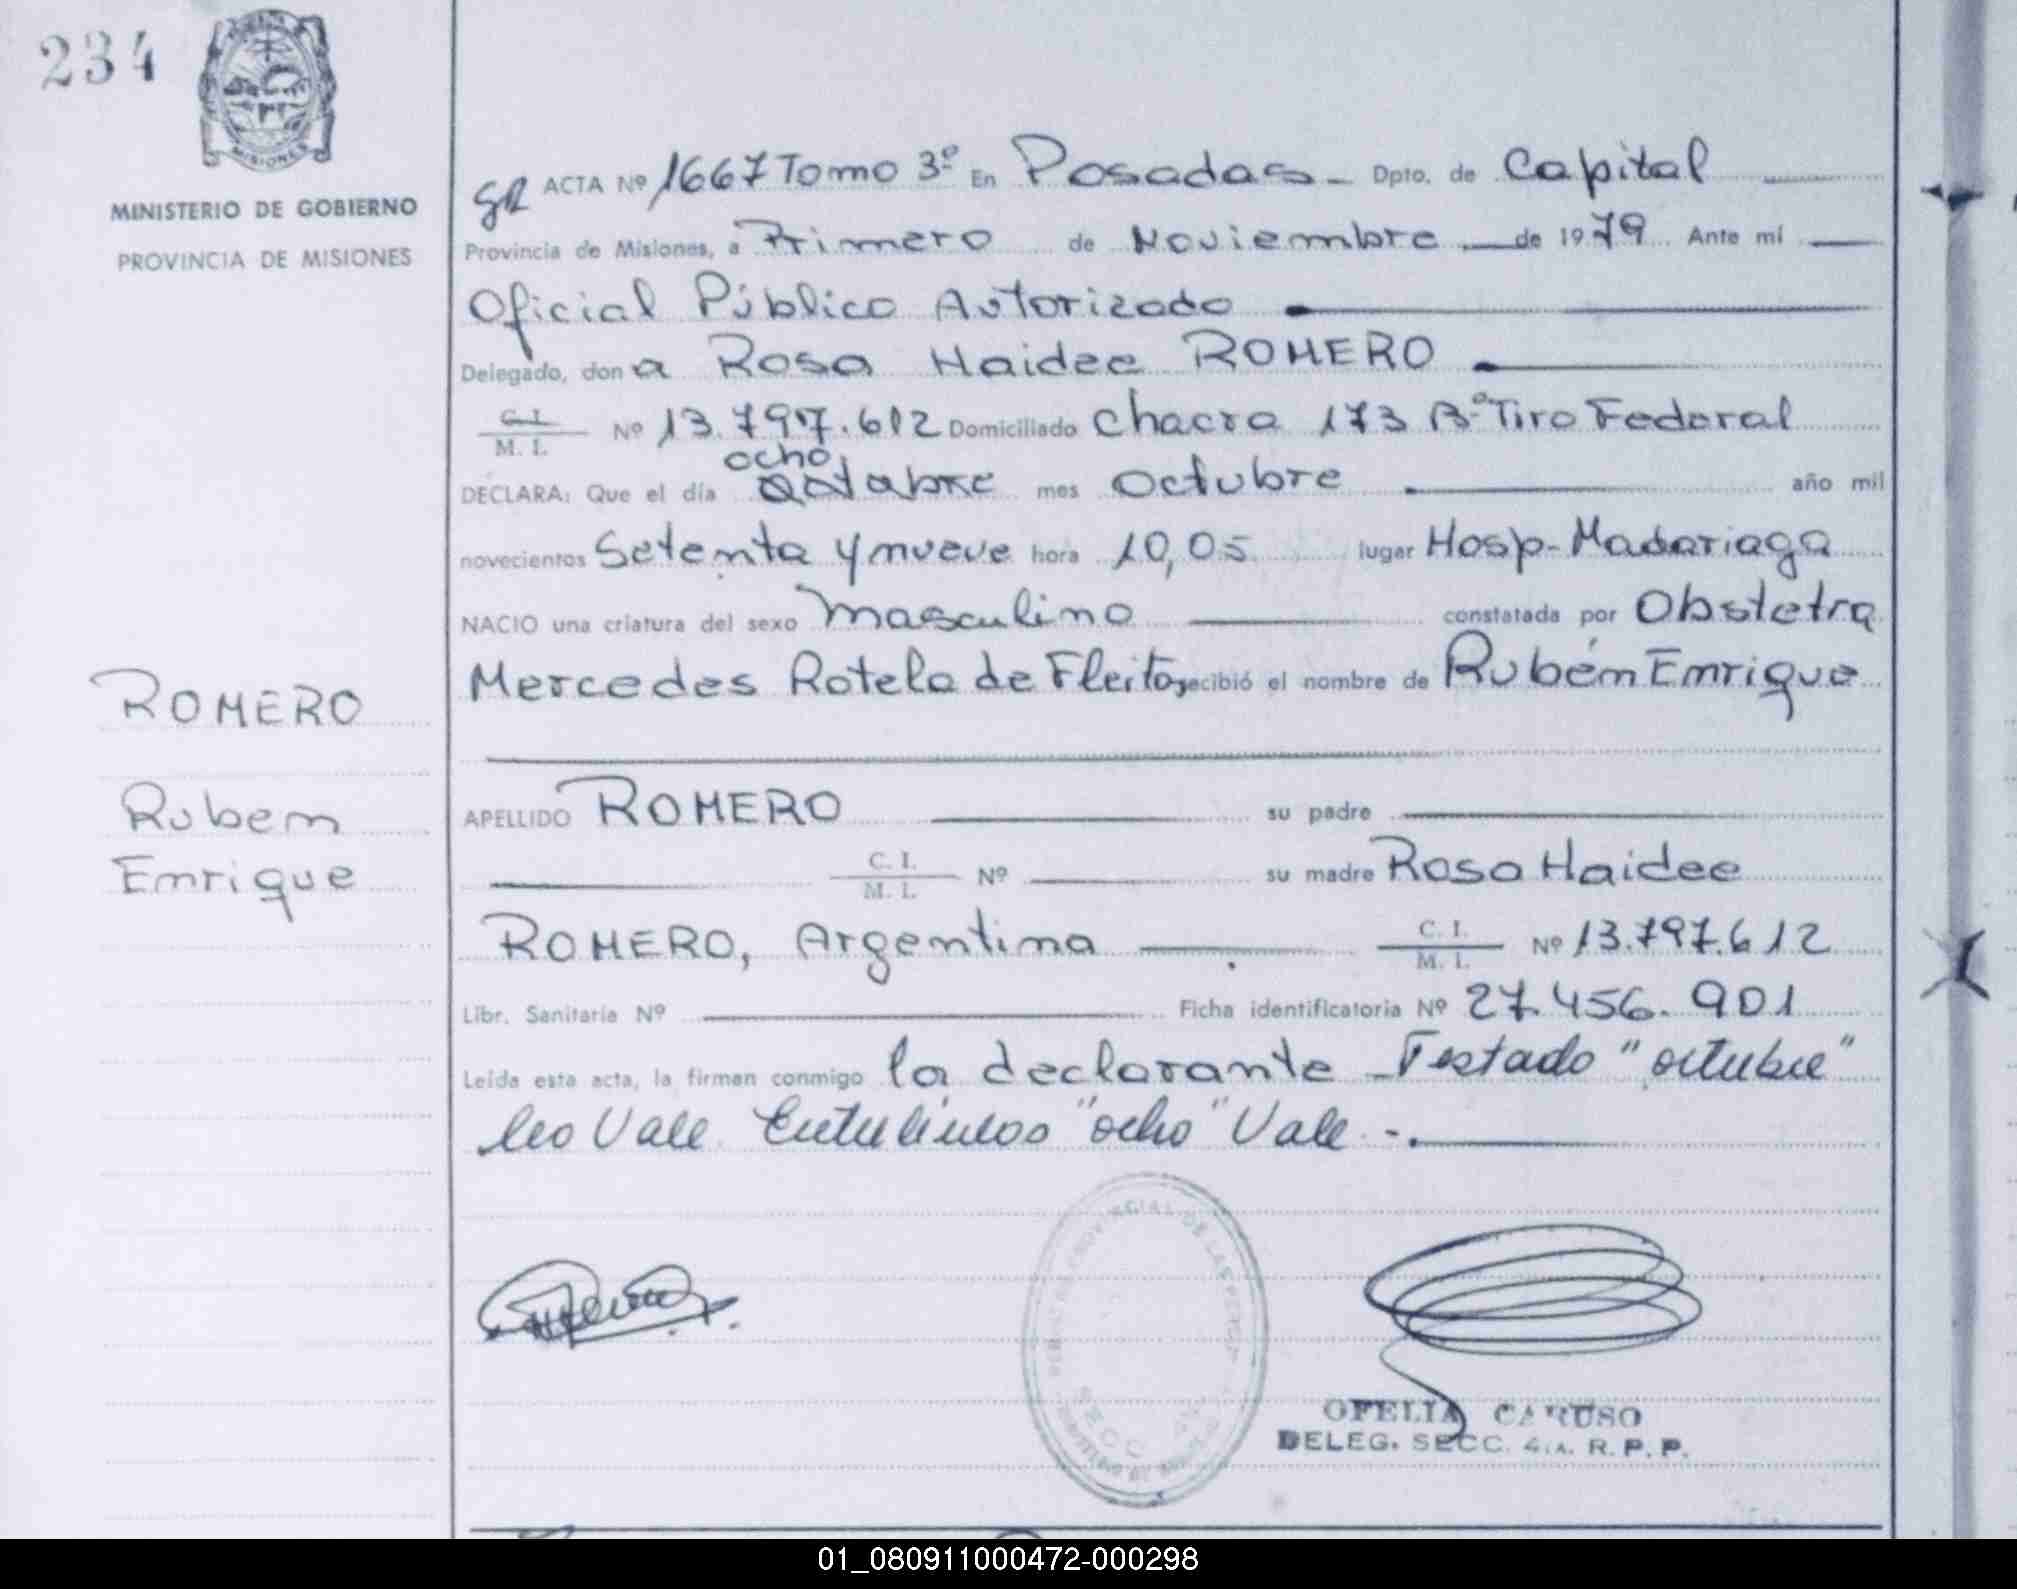 234
MISIONES
MINISTERIO DE GOBIERNO
PROVINCIA DE MISIONES
ROMERO
Ruben
Enrique
GR ACTA Nº 1667 Tomo 3º En Posadas - Dpto. de Capital
Provincia de Misiones, a Primero de Noviembre de 1979 Ante mí
Oficial Público Autorizado
Delegado, don a Rosa Haidee ROMERO
C. I. / M. I. Nº 13.797.612 Domiciliado Chacra 173 Bº Tiro Federal
ocho
DECLARA: Que el día octubre mes octubre año mil
novecientos Setenta y nueve hora 10,05 lugar Hosp- Madariaga
NACIO una criatura del sexo masculino constatada por Obstetra
Mercedes Rotela de Fleita, recibió el nombre de Rubén Enrique
APELLIDO ROMERO su padre
C. I. / M. I. Nº su madre Rosa Haidee
ROMERO, Argentina C. I. / M. I. Nº 13.797.612
Libr. Sanitaria Nº Ficha identificatoria Nº 27.456.901
Leída esta acta, la firman conmigo la declarante - Testado "octubre"
No Vale Entrelineas "ocho" Vale -.
PROVINCIAL DE LAS PERSONAS
SECC
OFELIA CARUSO
DELEG. SECC. 4.A. R. P. P.
01_080911000472-000298